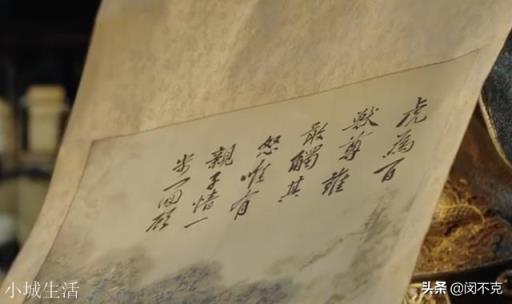 虎為百
獸尊誰
敢觸其
怒唯有
親子情一
步一回顧
小城生活
头条 @闵不克